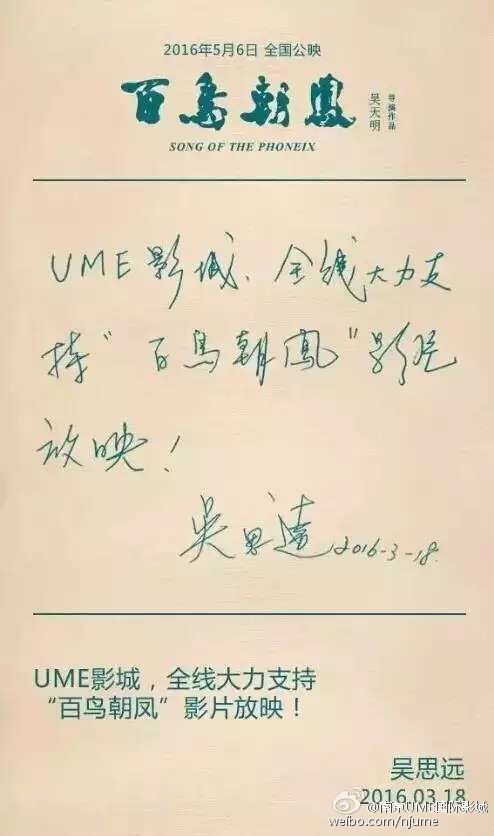 2016年5月6日 全国公映
百鳥朝鳳
吴天明
导演作品
SONG OF THE PHONEIX
UME影城、全线大力支
持“百鸟朝凤”影片
放映！
吴思远 2016-3-18.
UME影城，全线大力支持
“百鸟朝凤”影片放映！
吴思远
2016.03.18
@南京UME国际影城
weibo.com/njume